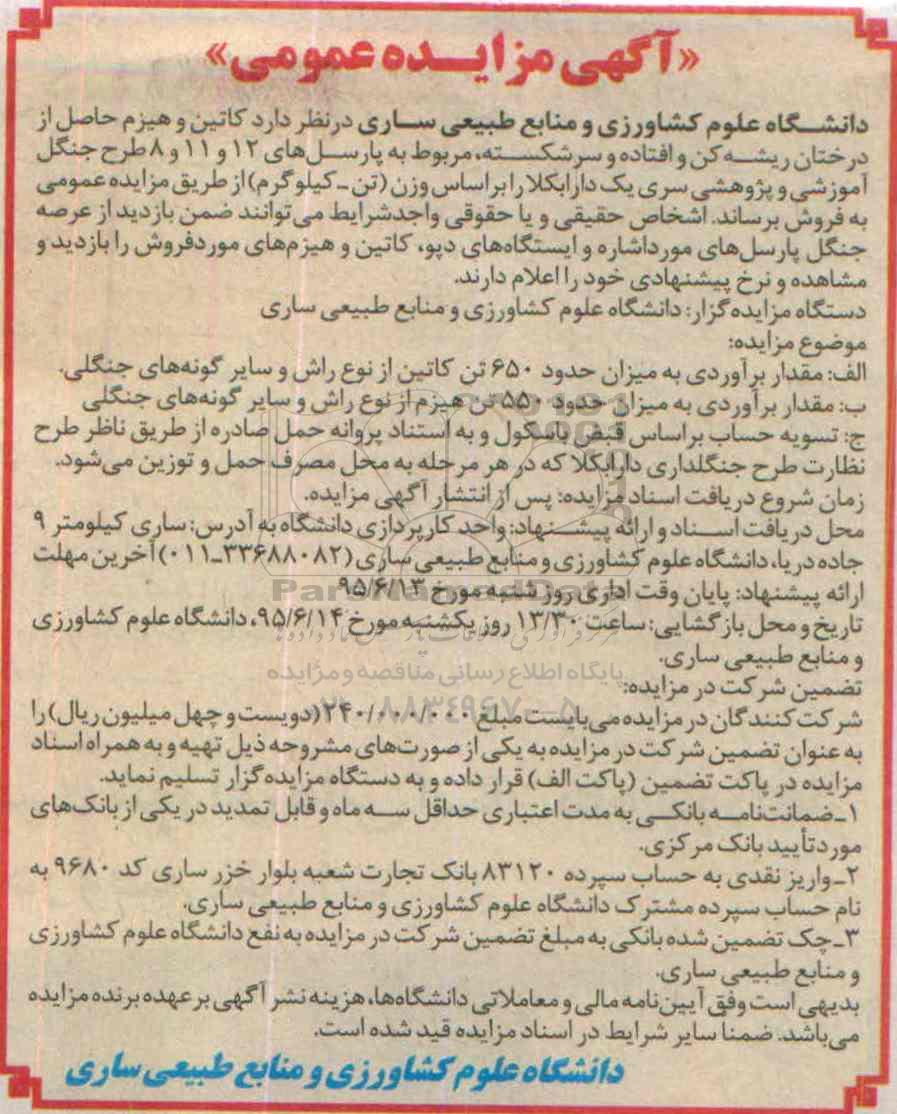 «آگهی مزایده عمومی»
دانشگاه علوم کشاورزی و منابع طبیعی ساری درنظر دارد کاتین و هیزم حاصل از
درختان ریشه‌کن و افتاده و سرشکسته، مربوط به پارسل‌های ۱۲ و ۱۱ و ۸ طرح جنگل
آموزشی و پژوهشی سری یک دارابکلا را براساس وزن (تن ـ کیلوگرم) از طریق مزایده عمومی
به فروش برساند. اشخاص حقیقی و یا حقوقی واجدشرایط می‌توانند ضمن بازدید از عرصه
جنگل پارسل‌های مورداشاره و ایستگاه‌های دپو، کاتین و هیزم‌های موردفروش را بازدید و
مشاهده و نرخ پیشنهادی خود را اعلام دارند.
دستگاه مزایده‌گزار: دانشگاه علوم کشاورزی و منابع طبیعی ساری
موضوع مزایده:
الف: مقدار برآوردی به میزان حدود ۶۵۰ تن کاتین از نوع راش و سایر گونه‌های جنگلی.
ب: مقدار برآوردی به میزان حدود ۵۵۰ تن هیزم از نوع راش و سایر گونه‌های جنگلی
ج: تسویه حساب براساس قبض باسکول و به استناد پروانه حمل صادره از طریق ناظر طرح
نظارت طرح جنگلداری دارابکلا که در هر مرحله به محل مصرف حمل و توزین می‌شود.
زمان شروع دریافت اسناد مزایده: پس از انتشار آگهی مزایده.
محل دریافت اسناد و ارائه پیشنهاد: واحد کارپردازی دانشگاه به آدرس: ساری کیلومتر ۹
جاده دریا، دانشگاه علوم کشاورزی و منابع طبیعی ساری (۳۳۶۸۸۰۸۲ـ۰۱۱) آخرین مهلت
ارائه پیشنهاد: پایان وقت اداری روز شنبه مورخ ۹۵/۶/۱۳
تاریخ و محل بازگشایی: ساعت ۱۳/۳۰ روز یکشنبه مورخ ۹۵/۶/۱۴، دانشگاه علوم کشاورزی
و منابع طبیعی ساری.
پایگاه اطلاع رسانی مناقصه و مزایده
تضمین شرکت در مزایده:
۰۲۱-۸۸۳۴۹۶۷۰-۵
شرکت‌کنندگان در مزایده می‌بایست مبلغ ۲۴۰/۰۰۰/۰۰۰ (دویست و چهل میلیون ریال) را
به عنوان تضمین شرکت در مزایده به یکی از صورت‌های مشروحه ذیل تهیه و به همراه اسناد
مزایده در پاکت تضمین (پاکت الف) قرار داده و به دستگاه مزایده‌گزار تسلیم نماید.
۱ـ ضمانت‌نامه بانکی به مدت اعتباری حداقل سه ماه و قابل تمدید در یکی از بانک‌های
مورد تأیید بانک مرکزی.
۲ـ واریز نقدی به حساب سپرده ۸۳۱۲۰ بانک تجارت شعبه بلوار خزر ساری کد ۹۶۸۰ به
نام حساب سپرده مشترک دانشگاه علوم کشاورزی و منابع طبیعی ساری.
۳ـ چک تضمین شده بانکی به مبلغ تضمین شرکت در مزایده به نفع دانشگاه علوم کشاورزی
و منابع طبیعی ساری.
بدیهی است وفق آیین‌نامه مالی و معاملاتی دانشگاه‌ها، هزینه نشر آگهی برعهده برنده مزایده
می‌باشد. ضمناً سایر شرایط در اسناد مزایده قید شده است.
دانشگاه علوم کشاورزی و منابع طبیعی ساری